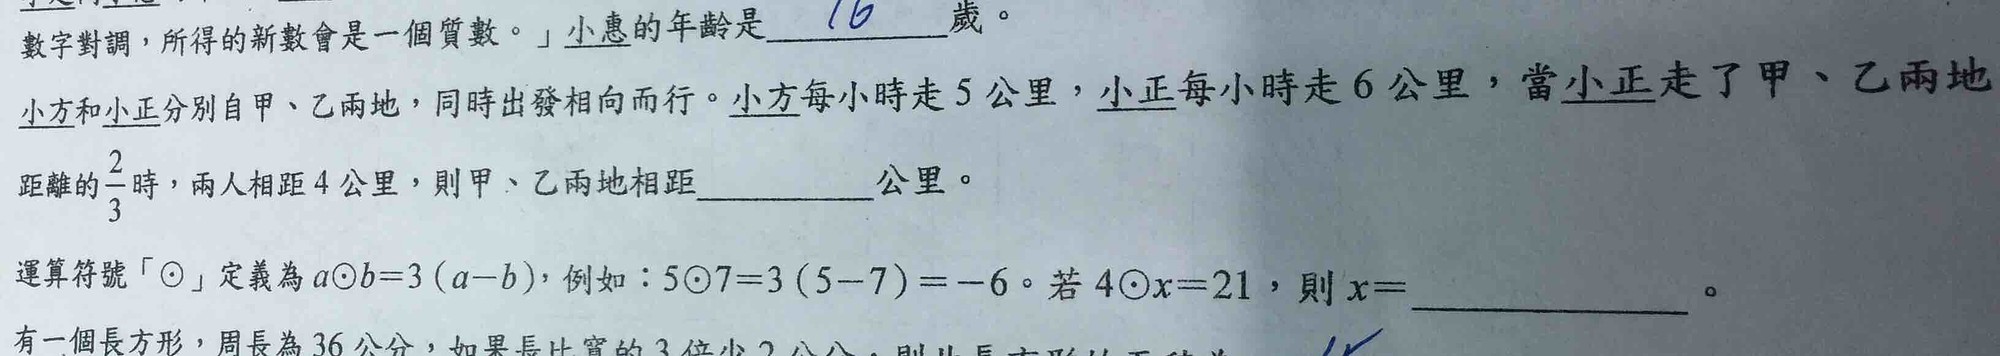 數字對調,所得的新數會是一個質數。」小惠的年齡是 16 歲。
小方和小正分別自甲、乙兩地,同時出發相向而行。小方每小時走 5 公里,小正每小時走 6 公里,當小正走了甲、乙兩地
距離的 2/3 時,兩人相距 4 公里,則甲、乙兩地相距________公里。
運算符號「⊙」定義為 a⊙b=3(a-b),例如:5⊙7=3(5-7)=-6。若 4⊙x=21,則 x=________。
有一個長方形,周長為 36 公分,如果長比寬的 3 倍少 2 公分,則此長方形的面積為